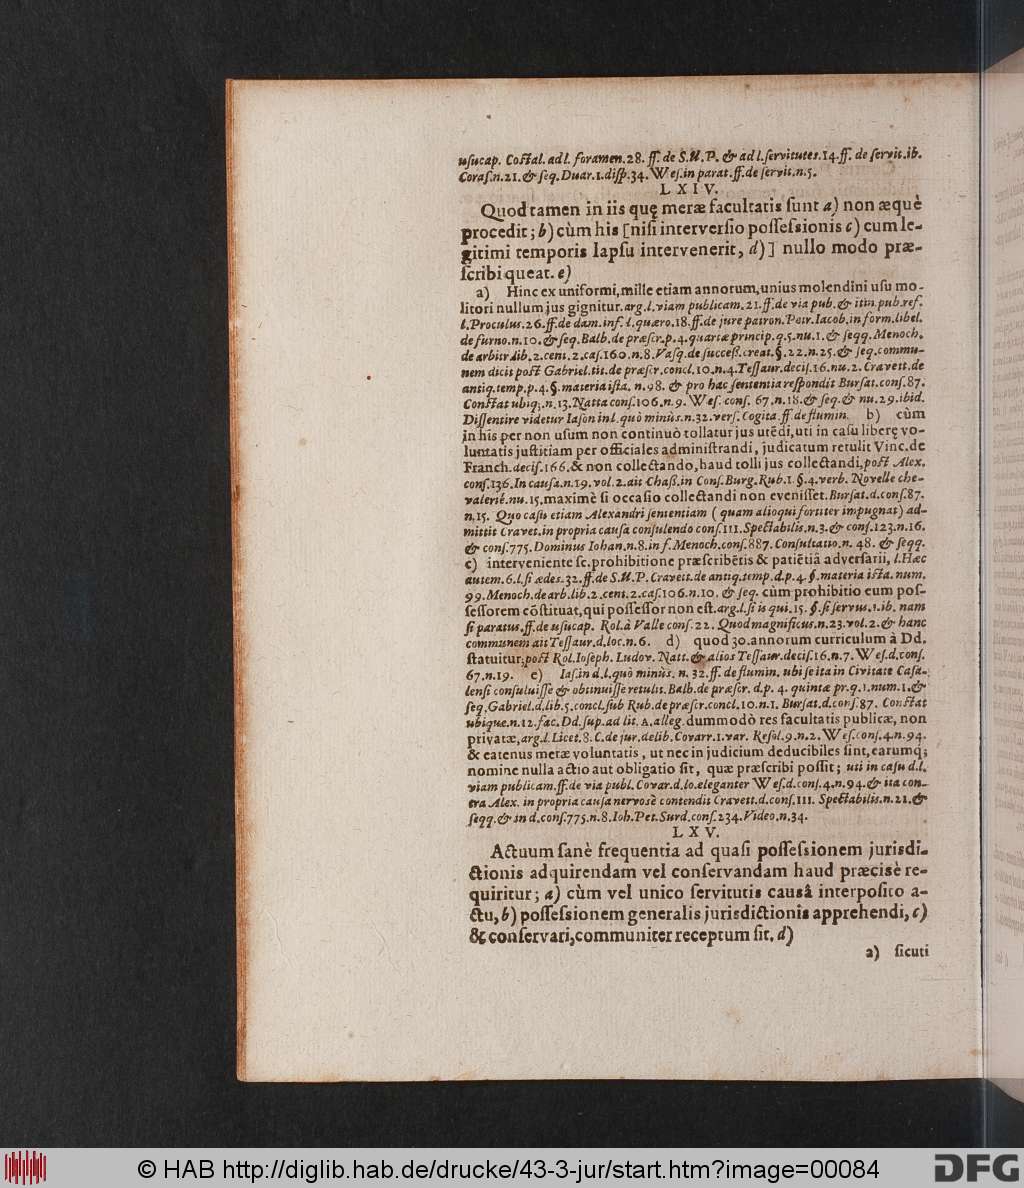 usucap. Costal. ad l. foramen. 28. ff. de S.U.P. & ad l. servitutes. 14. ff. de servit. ib.
Coras. n. 21. & seq. Duar. 1. disp. 34. Wes. in parat. ff. de servit. n. 5.
LXIV.
Quod tamen in iis quę meræ facultatis sunt a) non æquè
procedit; b) cùm his [nisi interversio possessionis c) cum le-
gitimi temporis lapsu intervenerit, d) ] nullo modo præ-
scribi queat. e)
a) Hinc ex uniformi, mille etiam annorum, unius molendini usu mo-
litori nullum jus gignitur. arg. l. viam publicam. 21. ff. de via pub. & itin. pub. ref.
l. Proculus. 26. ff. de dam. inf. l. quæro. 18. ff. de jure patron. Petr. Iacob. in form. libel.
de furno. n. 10. & seq. Balb. de præscr. p. 4. quartæ princip. q. 5. nu. 1. & seqq. Menoch.
de arbitr. lib. 2. cent. 2. cas. 160. n. 8. Vasq. de success. creat. §. 22. n. 25. & seq. commu-
nem dicit post Gabriel. tit. de præscr. concl. 10. n. 4. Tessaur. decis. 16. nu. 2. Cravett. de
antiq. temp. p. 4. §. materia ista. n. 98. & pro hac sententia respondit Bursat. cons. 87.
Constat ubiq;. n. 13. Natta cons. 106. n. 9. Wes. cons. 67. n. 18. & seq. & nu. 29. ibid.
Dissentire videtur Iason in l. quò minùs. n. 32. vers. Cogita. ff. de flumin. b) cùm
in his per non usum non continuò tollatur jus utēdi, uti in casu liberę vo-
luntatis justitiam per officiales administrandi, judicatum retulit Vinc. de
Franch. decis. 166. & non collectando, haud tolli jus collectandi, post Alex.
cons. 136. In causa. n. 19. vol. 2. ait Chass. in Cons. Burg. Rub. 1. §. 4. verb. Novelle che-
valerié. nu. 15. maximè si occasio collectandi non evenisset. Bursat. d. cons. 87.
n. 15. Quo casu etiam Alexandri sententiam (quam alioqui fortiter impugnat) ad-
mittit Cravet. in propria causa consulendo cons. 111. Spectabilis. n. 3. & cons. 123. n. 16.
& cons. 775. Dominus Iohan. n. 8. in f. Menoch. cons. 887. Consultatio. n. 48. & seqq.
c) interveniente sc. prohibitione præscribētis & patiētiâ adversarii, l. Hæc
autem. 6. l. si ædes. 32. ff. de S.U.P. Cravett. de antiq. temp. d. p. 4. §. materia ista. num.
99. Menoch. de arb. lib. 2. cent. 2. cas. 106. n. 10. & seq. cùm prohibitio eum pos-
sessorem cōstituat, qui possessor non est. arg. l. si is qui. 15. §. si servus. 1. ib. nam
si paratus. ff. de usucap. Rol. à Valle cons. 22. Quod magnificus. n. 23. vol. 2. & hanc
communem ait Tessaur. d. loc. n. 6. d) quod 30. annorum curriculum à Dd.
statuitur; post Rol. Ioseph. Ludov. Natt. & alios Tessaur. decis. 16. n. 7. Wes. d. cons.
67. n. 19. e) Ias. in d. l. quò minùs. n. 32. ff. de flumin. ubi se ita in Civitate Casa-
lensi consuluisse & obtinuisse retulit. Balb. de præscr. d. p. 4. quintæ pr. q. 1. num. 1. &
seq. Gabriel. d. lib. 5. concl. sub Rub. de præscr. concl. 10. n. 1. Bursat. d. cons. 87. Constat
ubique. n. 12. fac. Dd. sup. ad lit. A. alleg. dummodò res facultatis publicæ, non
privatæ, arg. l. Licet. 8. C. de jur. delib. Covarr. 1. var. Resol. 9. n. 2. Wes. cons. 4. n. 94.
& eatenus meræ voluntatis, ut nec in judicium deducibiles sint, earumq;
nomine nulla actio aut obligatio sit, quæ præscribi possit; uti in casu d. l.
viam publicam. ff. de via publ. Covar. d. lo. eleganter Wes. d. cons. 4. n. 94. & ita con-
tra Alex. in propria causa nervosè contendit Cravett. d. cons. 111. Spectabilis. n. 21. &
seqq. & in d. cons. 775. n. 8. Ioh. Pet. Surd. cons. 234. Video. n. 34.
LXV.
Actuum sanè frequentia ad quasi possessionem jurisdi-
ctionis adquirendam vel conservandam haud præcisè re-
quiritur; a) cùm vel unico servitutis causâ interposito a-
ctu, b) possessionem generalis jurisdictionis apprehendi, c)
& conservari, communiter receptum sit. d)
a) sicuti
© HAB http://diglib.hab.de/drucke/43-3-jur/start.htm?image=00084
DFG